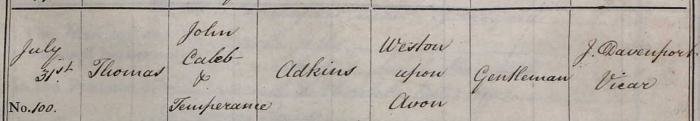 July
31.st
No. 100.
Thomas
John
Caleb
&
Temperance
Adkins
Weston
upon
Avon
Gentleman
J. Davenport
Vicar